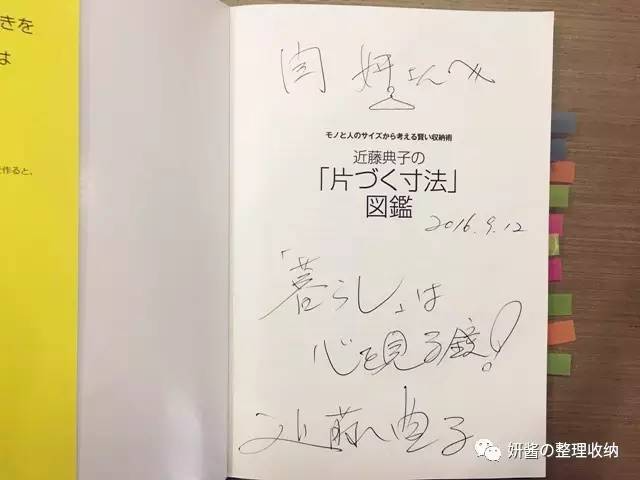 きを
は
作ると、
闫 妍さんへ
モノと人のサイズから考える賢い収納術
近藤典子の
「片づく寸法」
図鑑
2016.9.12
「暮らし」は
心を見る鏡！
近藤典子
妍酱の整理收纳